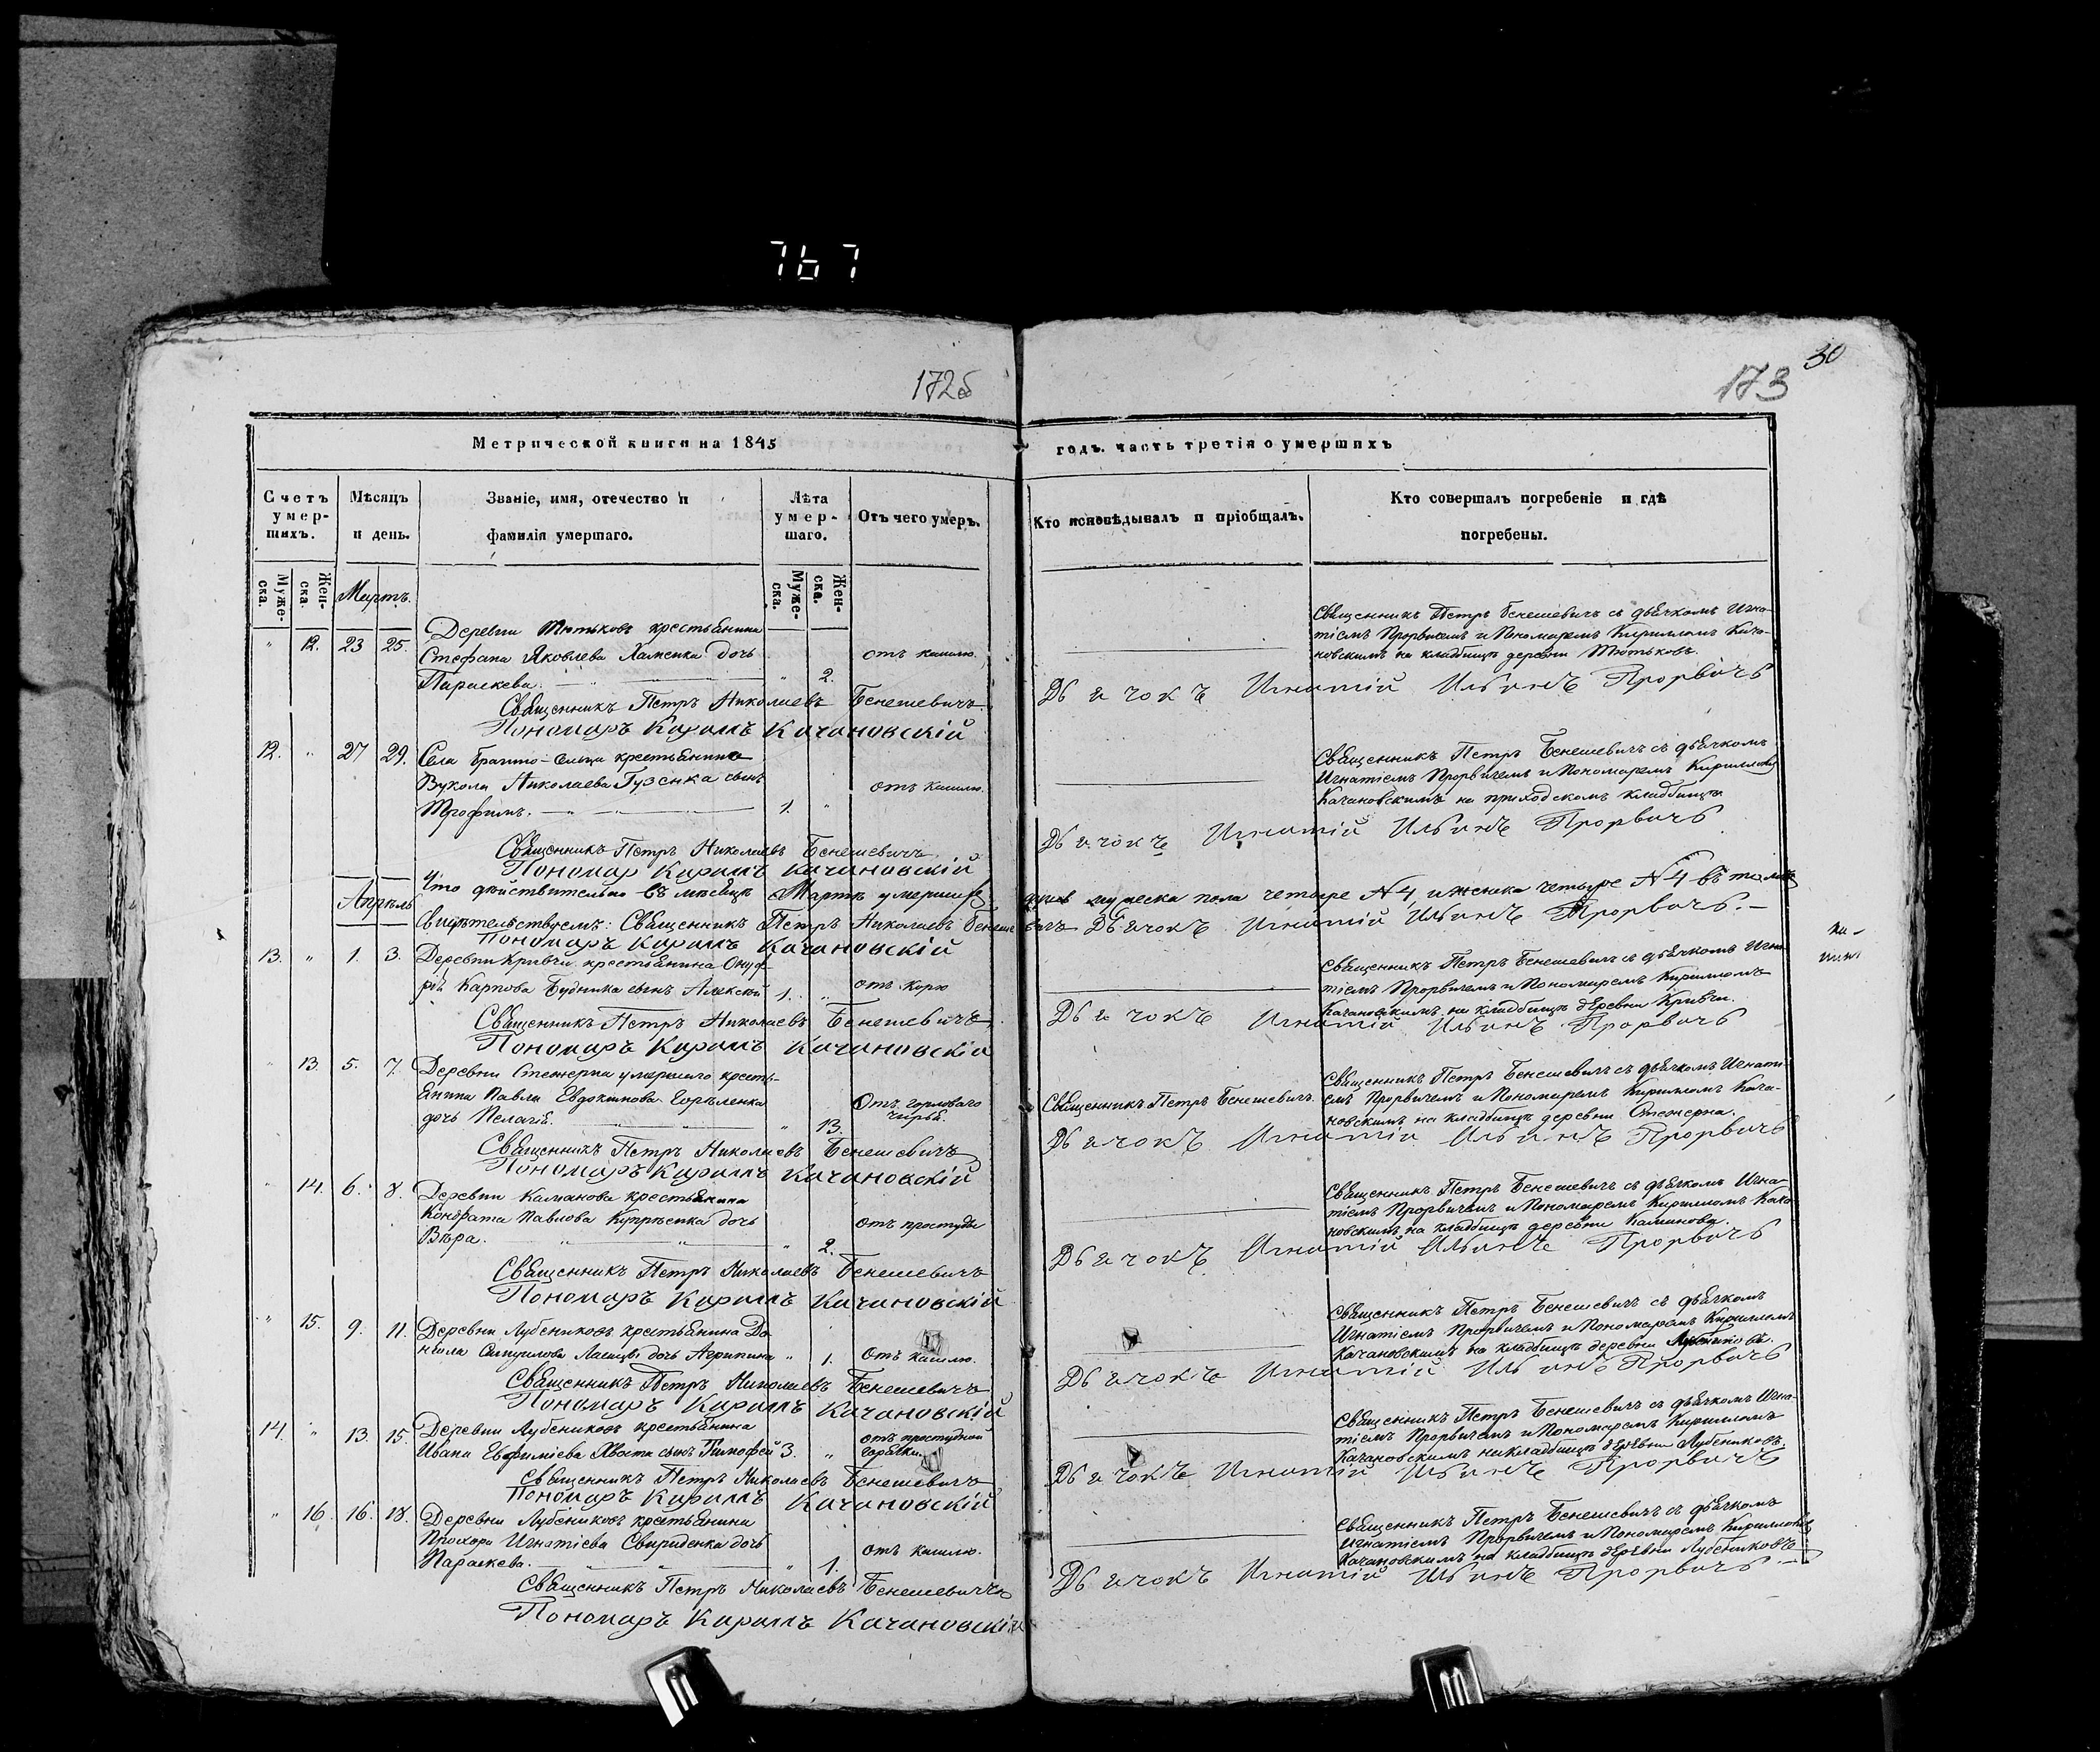 767
172об
173
30
Метрической книги на 1845
годъ. часть третія о умершихъ
Счетъ умер- шихъ.
Мѣсяцъ и день.
Званіе, имя, отечество и фамилія умершаго.
Лѣта умер- шаго.
Отъ чего умеръ.
Кто исповѣдывалъ и пріобщалъ.
Кто совершалъ погребеніе и гдѣ погребены.
Муже- ска.
Жен- ска.
Мартъ.
Муже- ска.
Жен- ска.
Деревни Тютьковъ крестьянина
" 12. 23 25. Стефана Яковлева Хаменка дочь отъ кашлю.
Параскева. " 2.
Священникъ Петръ Бенешевичъ съ дьячкомъ Игна-
тіемъ Прорвичемъ и Пономаремъ Кирилломъ Кача-
новскимъ на кладбищѣ деревни Тютьковъ.
Священникъ Петръ Николаевъ Бенешевичъ
Дьячокъ Игнатій Ильинъ Прорвичъ
Пономаръ Кирилъ Качановскій
12. " 27 29. Села крестьянина
Вукола Николаева Гузенка сынъ отъ кашлю.
Трофимъ. 1. "
Священникъ Петръ Бенешевичъ съ дьячкомъ
Игнатіемъ Прорвичемъ и Пономаремъ Кирилломъ
Качановскимъ на приходскомъ кладбищѣ
Священникъ Петръ Николаевъ Бенешевичъ
Дьячокъ Игнатій Ильинъ Прорвичъ
Пономар Кирилъ Качановскій
Что дѣйствительно въ мѣсяцѣ Мартѣ умершихъ мужеска пола четыре №4, и женска четыре №4 въ томъ
Апрѣль
Свидѣтельствуемъ: Священникъ Петръ Николаевъ Бенешевичъ Дьячокъ Игнатій Ильинъ Прорвичъ.
Пономаръ Кирилъ Качановскій
13. " 1. 3. Деревни Кривчи крестьянина Онуф-
рія Карпова Будника сынъ Алексѣй 1. " отъ корю
Священникъ Петръ Бенешевичъ съ дьячкомъ Игна-
тіемъ Прорвичемъ и Пономаремъ Кирилломъ
Качановскимъ на кладбищѣ деревни Кривчи.
Священникъ Петръ Николаевъ Бенешевичъ
Дьячокъ Игнатій Ильинъ Прорвичъ
Пономаръ Кирилъ Качановскій
" 13. 5. 7. Деревни Стежерна умершаго кресть-
янина Павла Евдокимова Горѣленка Отъ горловаго
дочь Пелагія. " 13. чирья.
Священникъ Петръ Бенешевичъ.
Священникъ Петръ Бенешевичъ съ дьячкомъ Игнаті-
емъ Прорвичемъ и Пономаремъ Кирилломъ Кача-
новскимъ на кладбищѣ деревни Стежерна.
Священникъ Петръ Николаевъ Бенешевичъ
Дьячокъ Игнатій Ильинъ Прорвичъ
Пономаръ Кирилъ Качановскій
" 14. 6. 8. Деревни Калманова крестьянина
Кондрата Павлова Купрѣенка дочь отъ простуды
Вѣра. " 2.
Священникъ Петръ Бенешевичъ съ дьячкомъ Игна-
тіемъ Прорвичемъ и Пономаремъ Кирилломъ Кача-
новскимъ на кладбищѣ деревни Калманова.
Священникъ Петръ Николаевъ Бенешевичъ
Дьячокъ Игнатій Ильинъ Прорвичъ
Пономаръ Кирилъ Качановскій
" 15. 9. 11. Деревни Лубениковъ крестьянина Да-
ніила Самуилова дочь Агрипина " 1. Отъ кашлю.
Священникъ Петръ Бенешевичъ съ дьячкомъ
Игнатіемъ Прорвичемъ и Пономаремъ Кирилломъ
Качановскимъ на кладбищѣ деревни Лубениковъ.
Священникъ Петръ Николаевъ Бенешевичъ
Дьячокъ Игнатій Ильинъ Прорвичъ
Пономаръ Кирилъ Качановскій
14. " 13. 15. Деревни Лубениковъ крестьянина отъ простудной
Ивана Евфиміева Хвоста сынъ Тимофей 3. " горячки.
Священникъ Петръ Бенешевичъ съ дьячкомъ Игна-
тіемъ Прорвичемъ и Пономаремъ Кирилломъ
Качановскимъ на кладбищѣ деревни Лубениковъ
Священникъ Петръ Николаевъ Бенешевичъ
Дьячокъ Игнатій Ильинъ Прорвичъ
Пономаръ Кирилъ Качановскій
" 16. 16. 18. Деревни Лубениковъ крестьянина
Прохора Игнатіева Свириденка дочь отъ кашлю.
Параскева. " 1.
Священникъ Петръ Бенешевичъ съ дьячкомъ
Игнатіемъ Прорвичемъ и Пономаремъ Кирилломъ
Качановскимъ на кладбищѣ деревни Лубениковъ
Священникъ Петръ Николаевъ Бенешевичъ
Дьячокъ Игнатій Ильинъ Прорвичъ
Пономаръ Кирилъ Качановскій